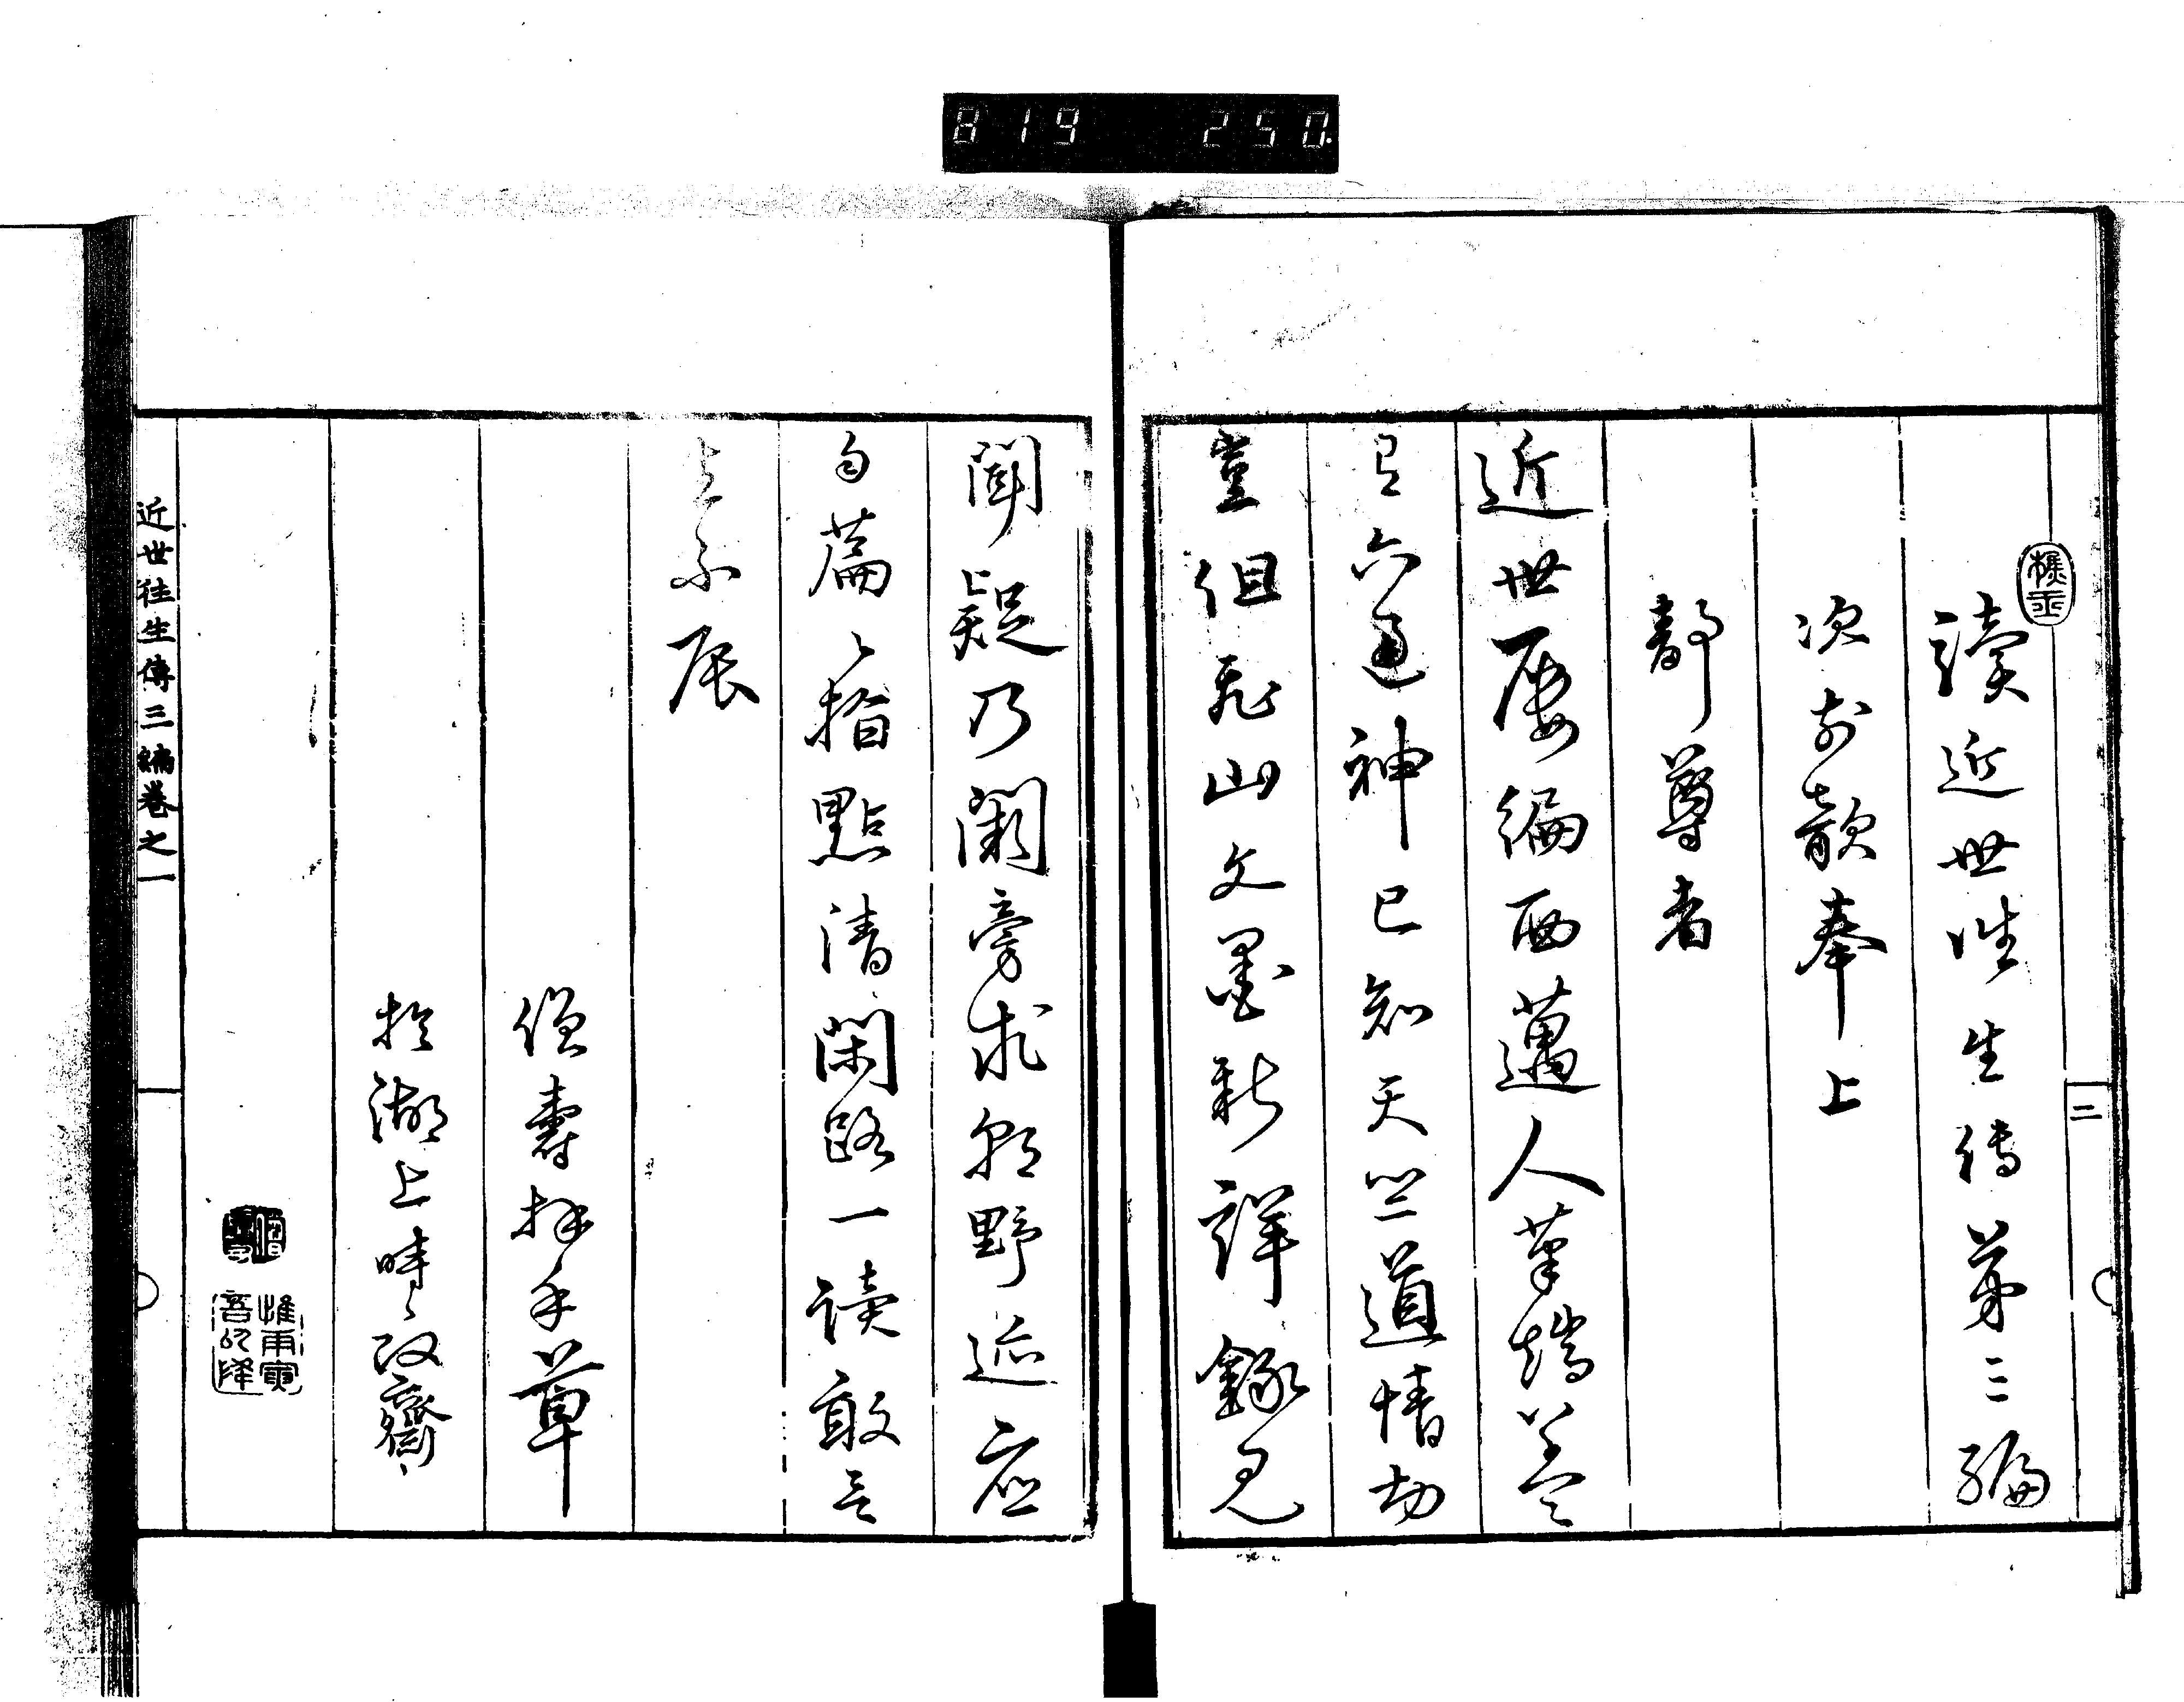 819 250.
二
讀近世往生傳第三編
次前韻奉上
静尊者
近世屢編西邁人筆端並
六通神已知天竺道情切
豈但飛山文墨新詳錄見
聞疑乃闕旁求朝野迹應
句篇々指點清閑路一讀敢言
不展
僧壽拜手草
於湖上晴改齋
近世往生傳三編卷之一